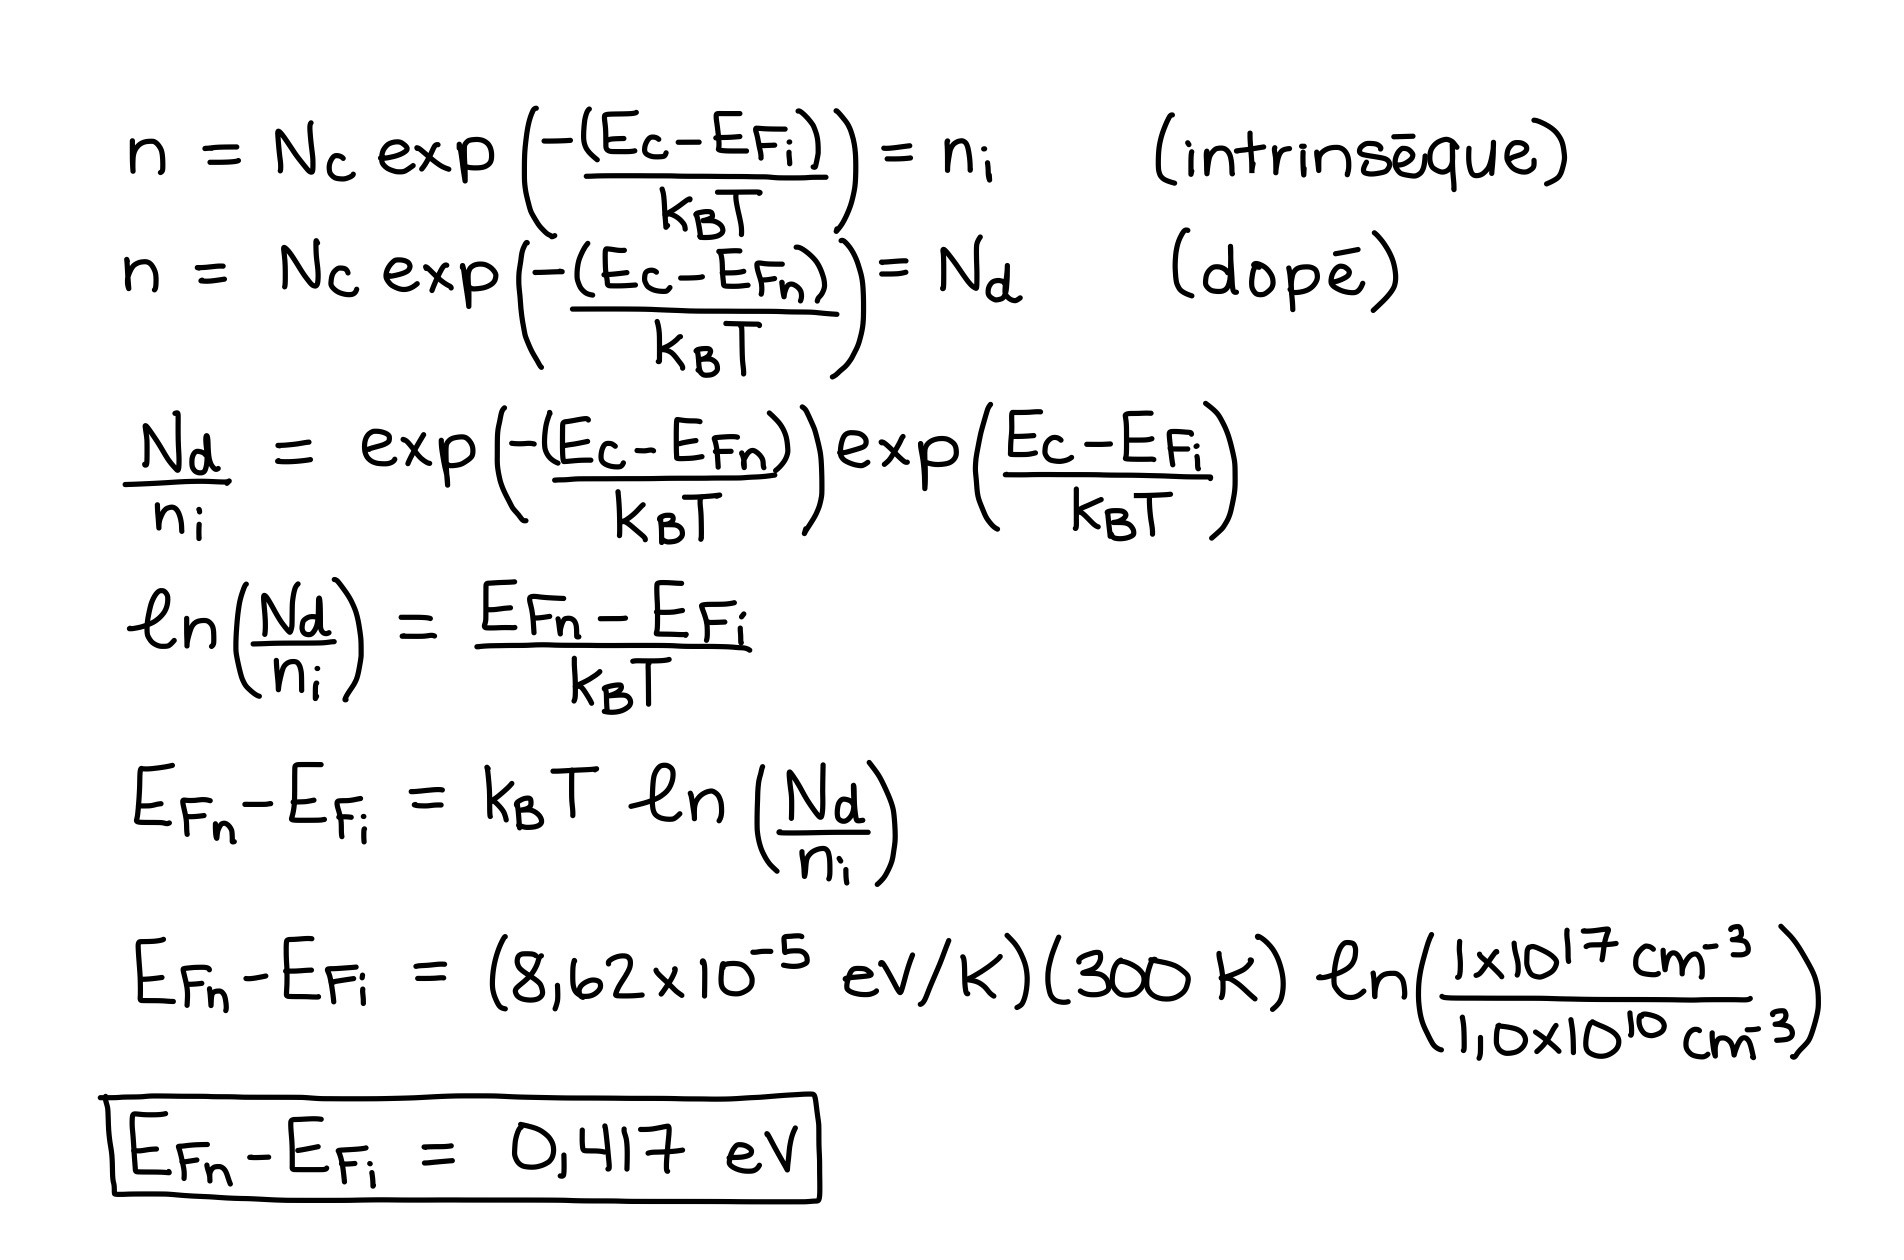 n = N_C exp(-(E_C - E_{Fi}) / k_BT) = n_i (intrinsēque)
n = N_C exp(-(E_C - E_{Fn}) / k_BT) = N_d (dopē)
N_d / n_i = exp(-(E_C - E_{Fn}) / k_BT) exp((E_C - E_{Fi}) / k_BT)
ln(N_d / n_i) = (E_{Fn} - E_{Fi}) / k_BT
E_{Fn} - E_{Fi} = k_BT ln(N_d / n_i)
E_{Fn} - E_{Fi} = (8,62x10^{-5} eV/K)(300 K) ln(1x10^{17} cm^{-3} / 1,0x10^{10} cm^{-3})
E_{Fn} - E_{Fi} = 0,417 eV